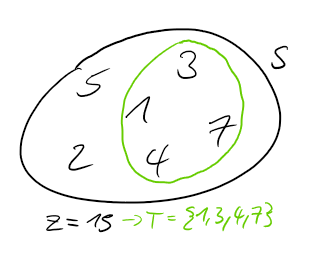 S
5 3
1
7
2 4
z = 15 → T = {1,3,4,7}